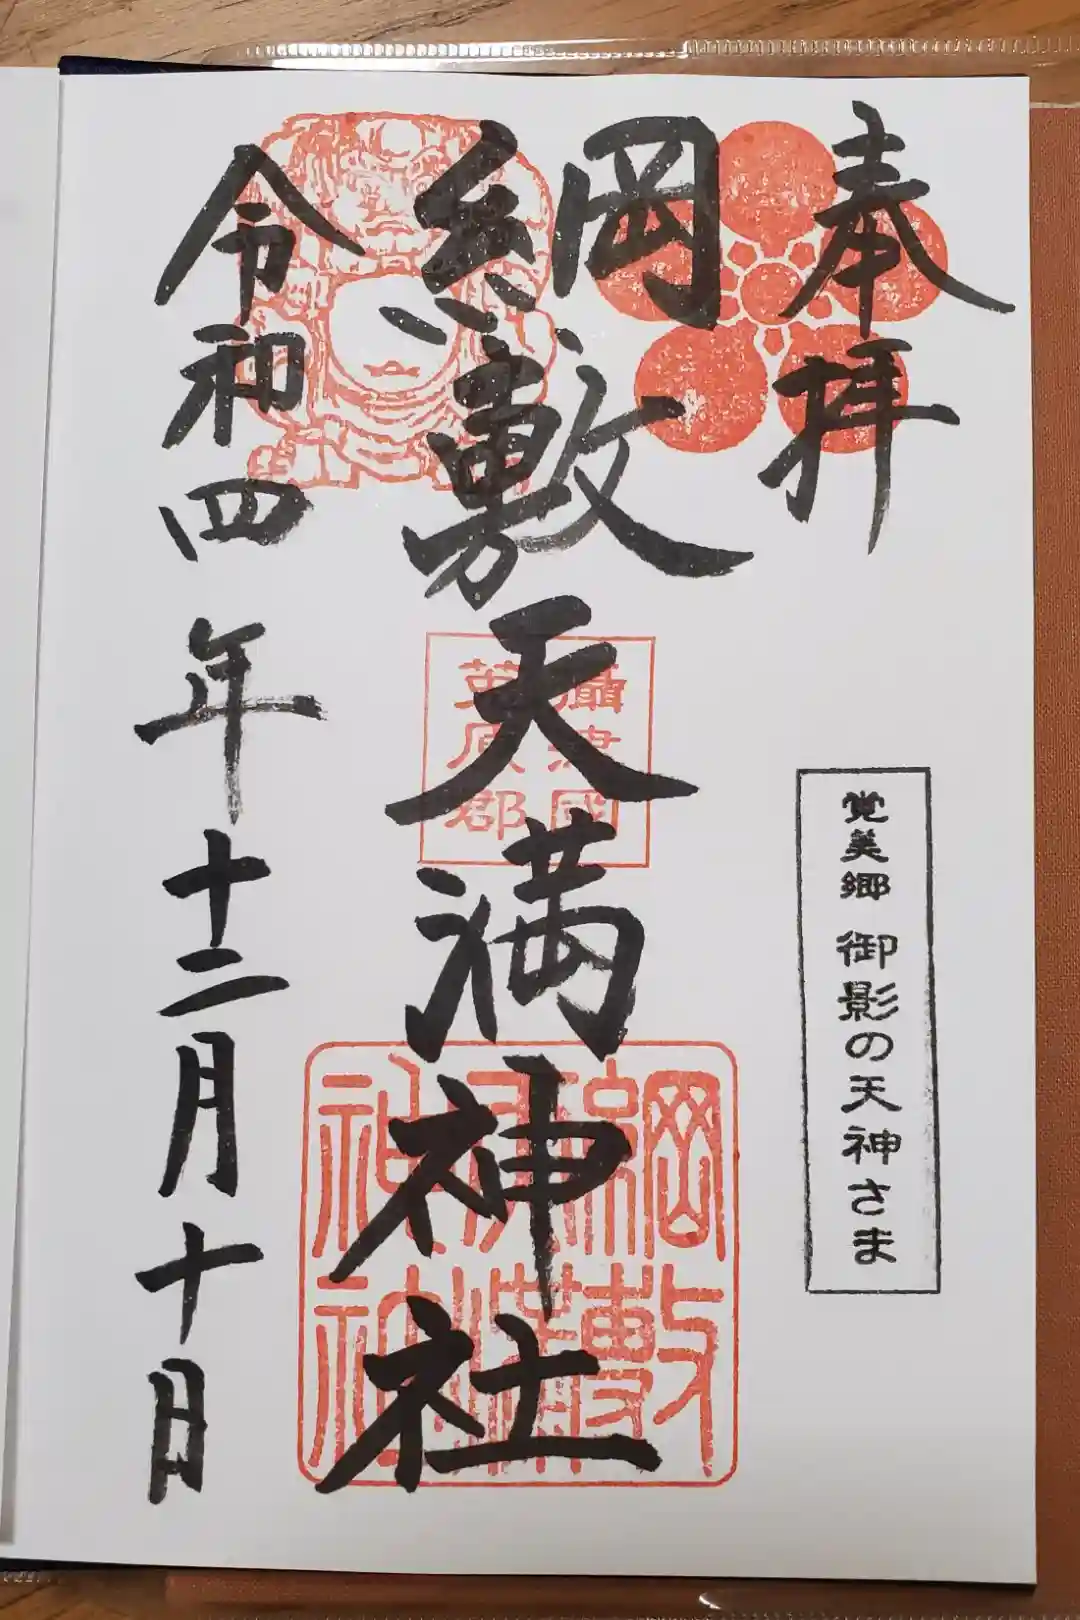 奉拝
覚美郷 御影の天神さま
綱敷天満神社
攝津國
菟原郡
綱敷
天満
神社
令和四年十二月十日